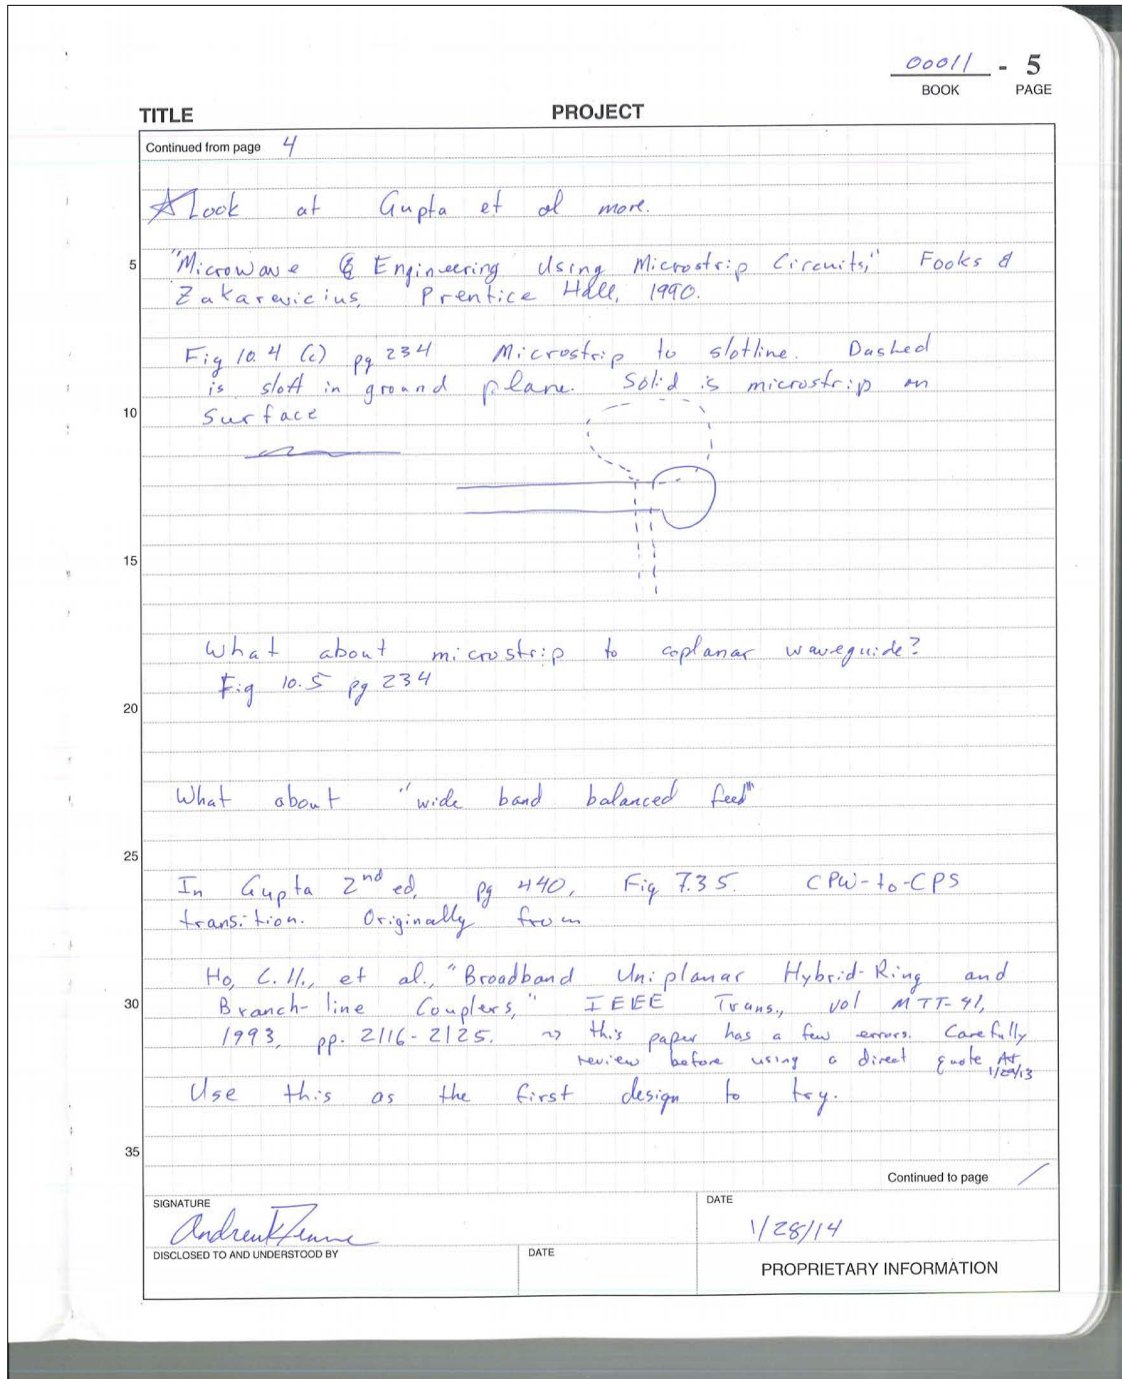 00011 - 5
BOOK PAGE
TITLE PROJECT
Continued from page 4
☆ Look at Gupta et al more.
5 "Microwave Engineering Using Microstrip Circuits," Fooks &
Zakarevicius, Prentice Hall, 1990.
Fig 10.4 (c) pg 234 Microstrip to slotline. Dashed
is slott in ground plane. Solid is microstrip on
10 surface
15
What about microstrip to coplanar waveguide?
Fig 10.5 pg 234
20
What about "wide band balanced feed"
25
In Gupta 2nd ed, pg 440, Fig 7.35. CPW-to-CPS
transition. Originally from
Ho, C.H., et al., "Broadband Uniplanar Hybrid-Ring and
30 Branch-line Couplers," IEEE Trans., vol MTT-41,
1993, pp. 2116-2125. ⇝ this paper has a few errors. Carefully
review before using a direct quote
1/29/13
Use this as the first design to try.
35
Continued to page /
SIGNATURE DATE
Andrew 1/28/14
DISCLOSED TO AND UNDERSTOOD BY DATE
PROPRIETARY INFORMATION